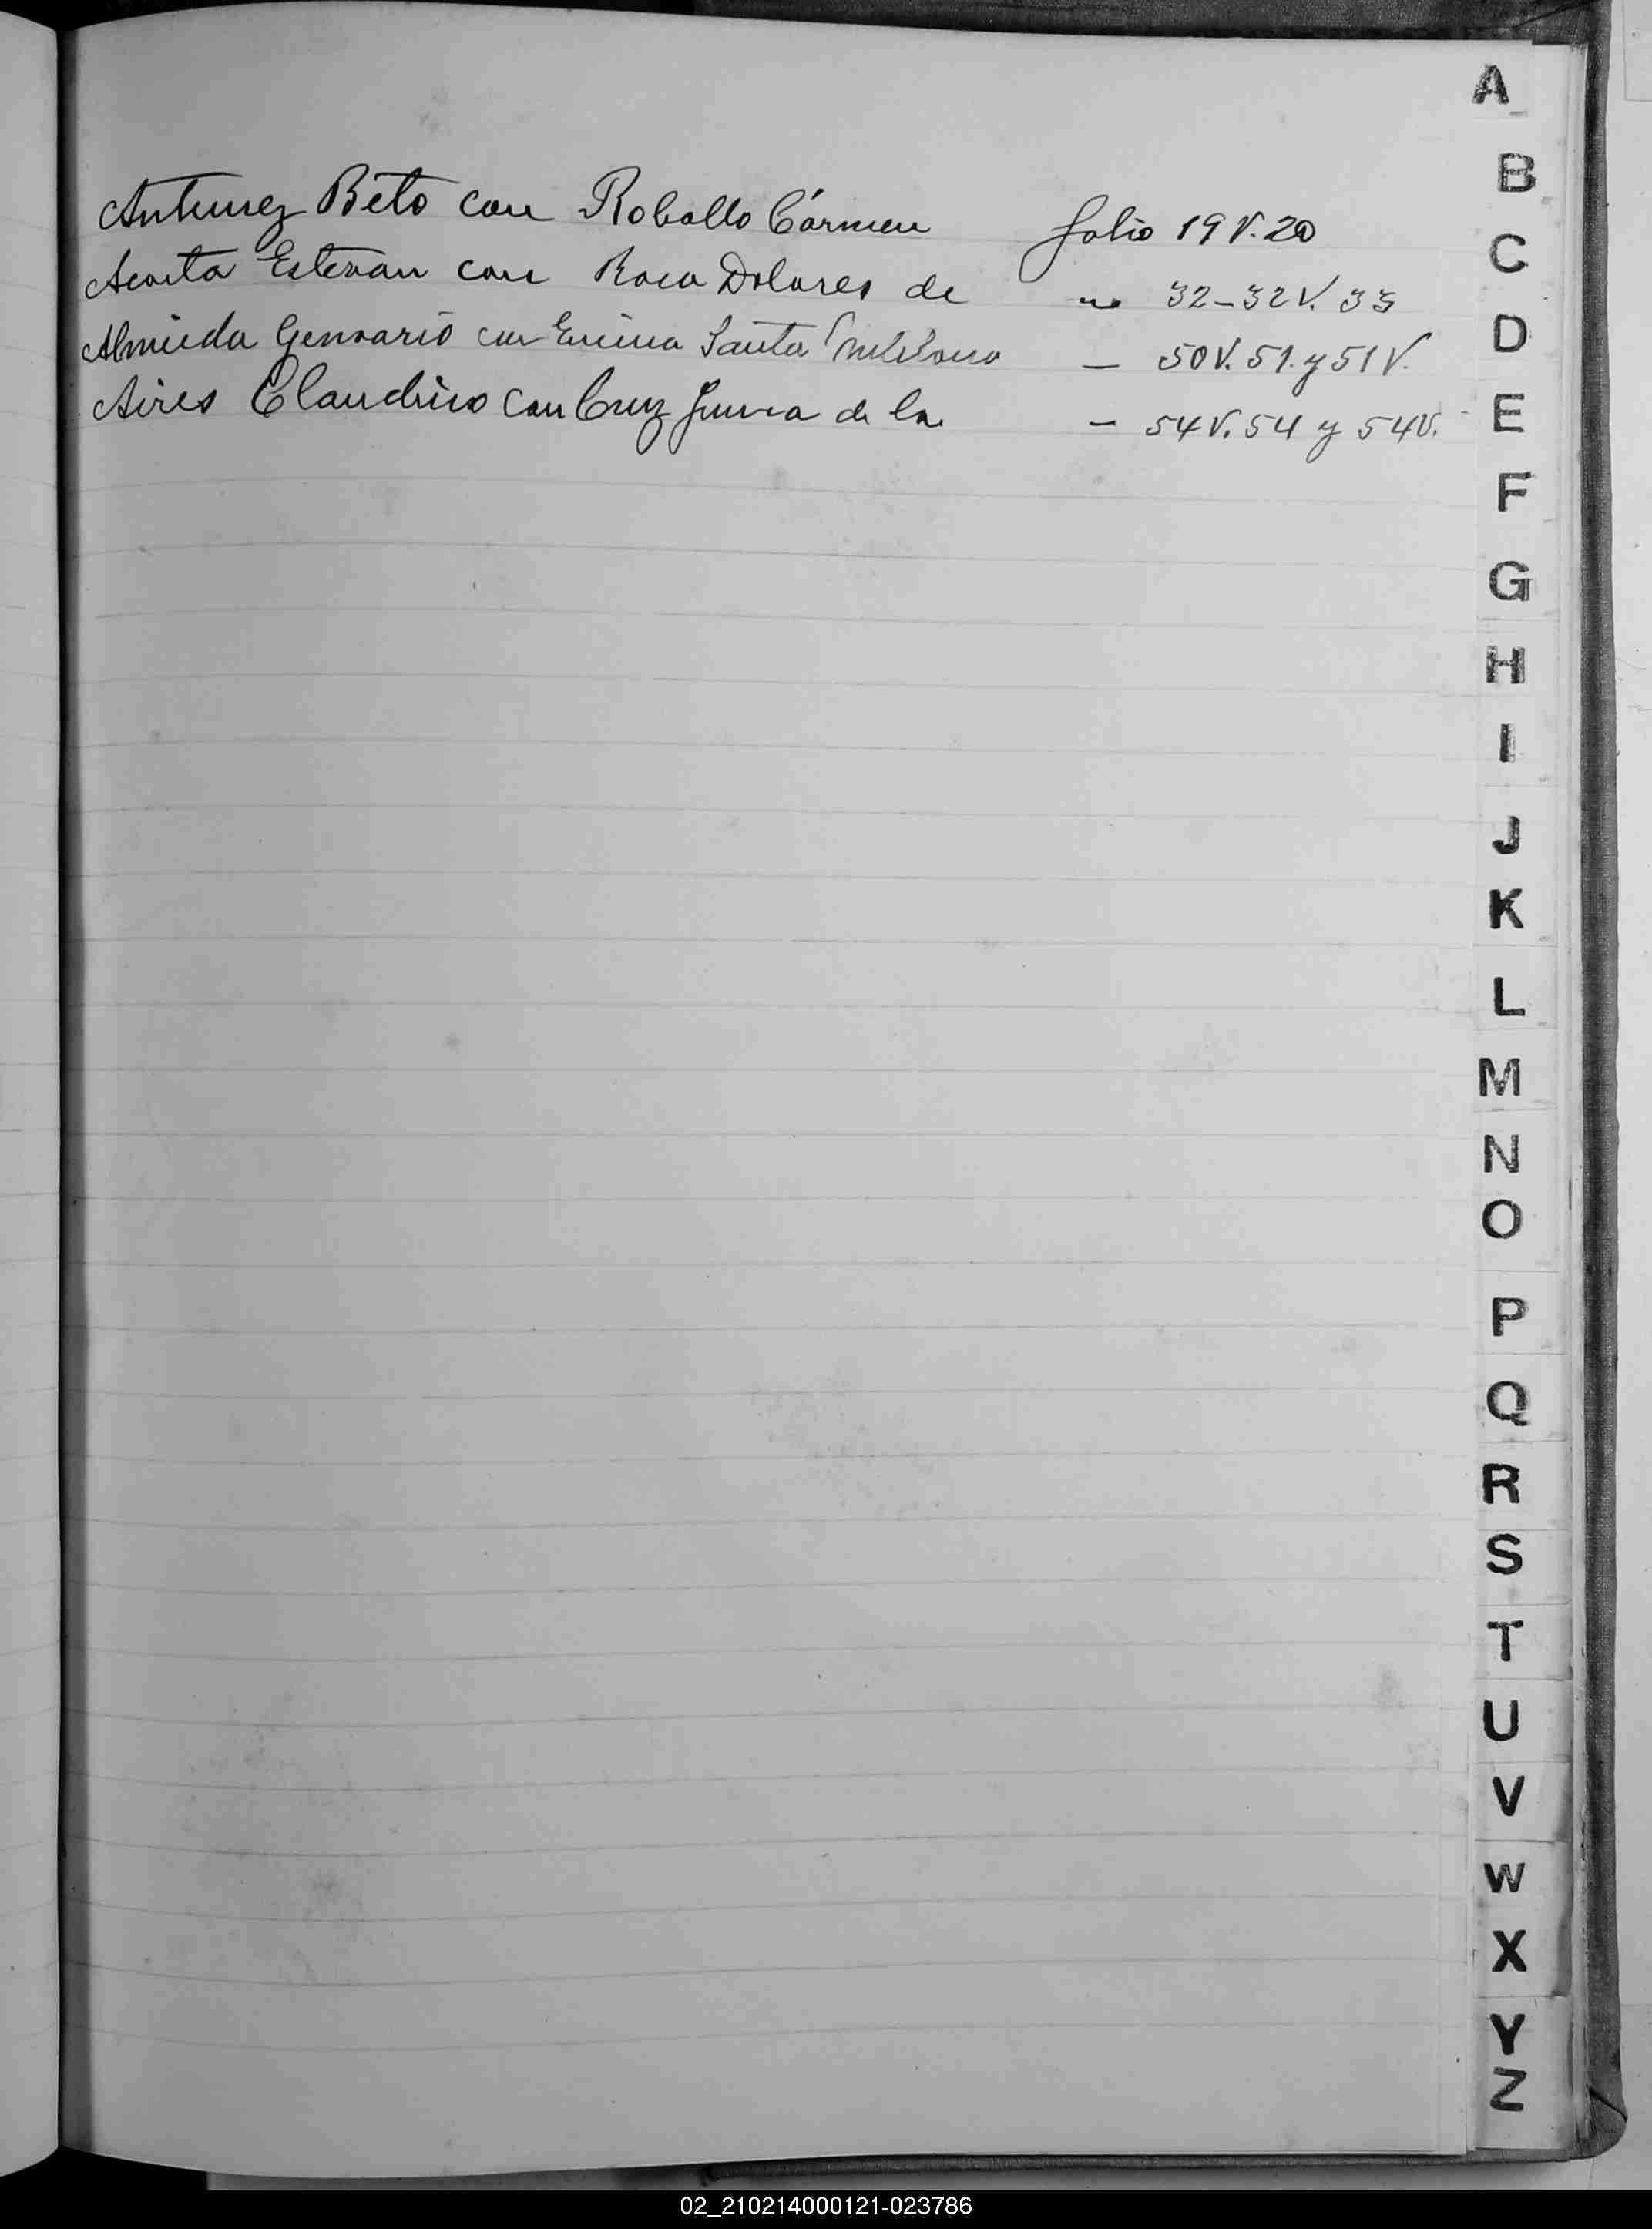 Antunez Beto con Roballo Cármen folio 19 V. 20
Acosta Estevan con Roca Dolores de " 32-32 V. 33
Almieda Gennario con Emma Santa — 50 V. 51. y 51 V.
Aires Claudino con Cruz Juana de la — 54 V. 54 y 54 V.
A
B
C
D
E
F
G
H
I
J
K
L
M
N
O
P
Q
R
S
T
U
V
W
X
Y
Z
02_210214000121-023786